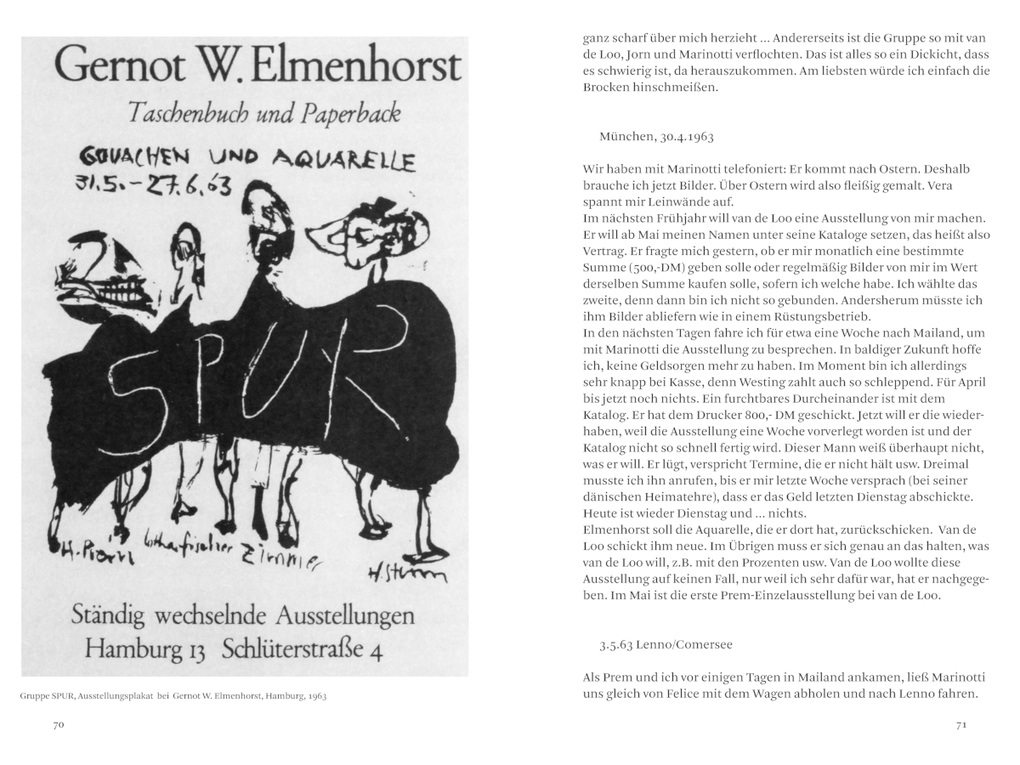 Gernot W. Elmenhorst
Taschenbuch und Paperback
GOUACHEN UND AQUARELLE
31.5.–27.6.63
SPUR
H. Prem
lothar fischer
Zimmer
H. Sturm
Ständig wechselnde Ausstellungen
Hamburg 13 Schlüterstraße 4
Gruppe SPUR, Ausstellungsplakat bei Gernot W. Elmenhorst, Hamburg, 1963
70
ganz scharf über mich herzieht ... Andererseits ist die Gruppe so mit van
de Loo, Jorn und Marinotti verflochten. Das ist alles so ein Dickicht, dass
es schwierig ist, da herauszukommen. Am liebsten würde ich einfach die
Brocken hinschmeißen.
München, 30.4.1963
Wir haben mit Marinotti telefoniert: Er kommt nach Ostern. Deshalb
brauche ich jetzt Bilder. Über Ostern wird also fleißig gemalt. Vera
spannt mir Leinwände auf.
Im nächsten Frühjahr will van de Loo eine Ausstellung von mir machen.
Er will ab Mai meinen Namen unter seine Kataloge setzen, das heißt also
Vertrag. Er fragte mich gestern, ob er mir monatlich eine bestimmte
Summe (500,-DM) geben solle oder regelmäßig Bilder von mir im Wert
derselben Summe kaufen solle, sofern ich welche habe. Ich wählte das
zweite, denn dann bin ich nicht so gebunden. Andersherum müsste ich
ihm Bilder abliefern wie in einem Rüstungsbetrieb.
In den nächsten Tagen fahre ich für etwa eine Woche nach Mailand, um
mit Marinotti die Ausstellung zu besprechen. In baldiger Zukunft hoffe
ich, keine Geldsorgen mehr zu haben. Im Moment bin ich allerdings
sehr knapp bei Kasse, denn Westing zahlt auch so schleppend. Für April
bis jetzt noch nichts. Ein furchtbares Durcheinander ist mit dem
Katalog. Er hat dem Drucker 800,- DM geschickt. Jetzt will er die wieder-
haben, weil die Ausstellung eine Woche vorverlegt worden ist und der
Katalog nicht so schnell fertig wird. Dieser Mann weiß überhaupt nicht,
was er will. Er lügt, verspricht Termine, die er nicht hält usw. Dreimal
musste ich ihn anrufen, bis er mir letzte Woche versprach (bei seiner
dänischen Heimatehre), dass er das Geld letzten Dienstag abschickte.
Heute ist wieder Dienstag und ... nichts.
Elmenhorst soll die Aquarelle, die er dort hat, zurückschicken. Van de
Loo schickt ihm neue. Im Übrigen muss er sich genau an das halten, was
van de Loo will, z.B. mit den Prozenten usw. Van de Loo wollte diese
Ausstellung auf keinen Fall, nur weil ich sehr dafür war, hat er nachgege-
ben. Im Mai ist die erste Prem-Einzelausstellung bei van de Loo.
3.5.63 Lenno/Comersee
Als Prem und ich vor einigen Tagen in Mailand ankamen, ließ Marinotti
uns gleich von Felice mit dem Wagen abholen und nach Lenno fahren.
71